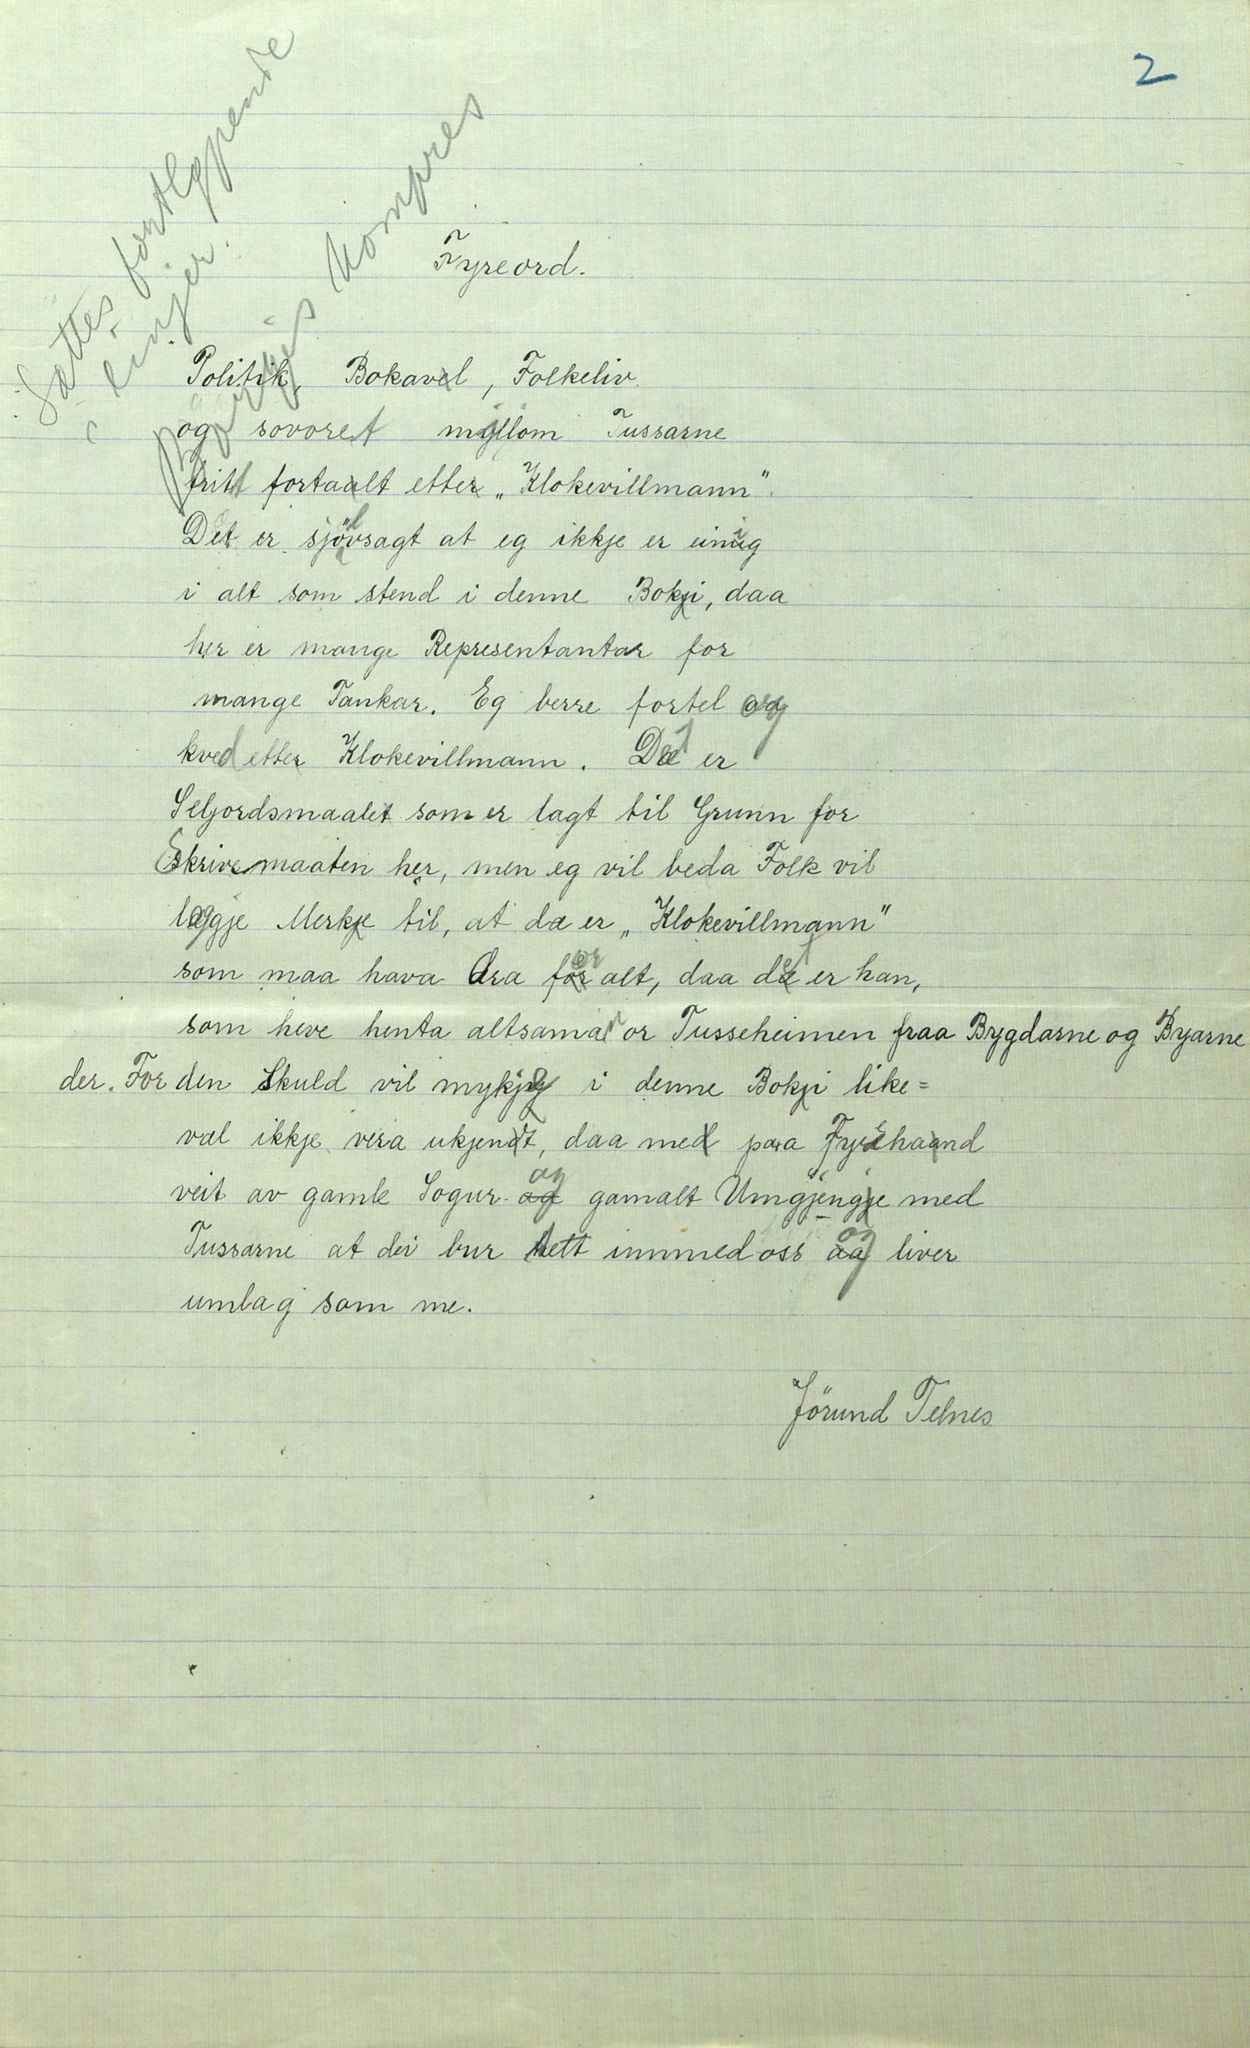 2
Sættes fortløpende
i linjer.
Kompres
Fyreord.
Politik, Bokavel, Folkeliv
og sovoret myllom Tussarne
fritt fortaalt etter „Klokevillmann".
Det er sjölvsagt at eg ikkje er einig
i alt som stend i denne Bokji, daa
her er mange Representantar for
mange Tankar. Eg berre fortel og
kved etter Klokevillmann. Det er
Seljordsmaalet som er lagt til Grunn for
Skrivemaaten her, men eg vil beda Folk vil
leggje Merkje til, at da er „Klokevillmann"
som maa hava Æra for alt, daa det er han,
som heve henta altsaman or Tusseheimen fraa Bygdarne og Byarne
der. For den Skuld vil mykje i denne Bokji like=
væl ikkje vera ukjendt, daa med paa Fyrehaand
veit av gamle Sogur og gamalt Umgjengje med
Tussarne at dei bur tett innmed oss og liver
umlag som me.
Jörund Telnes